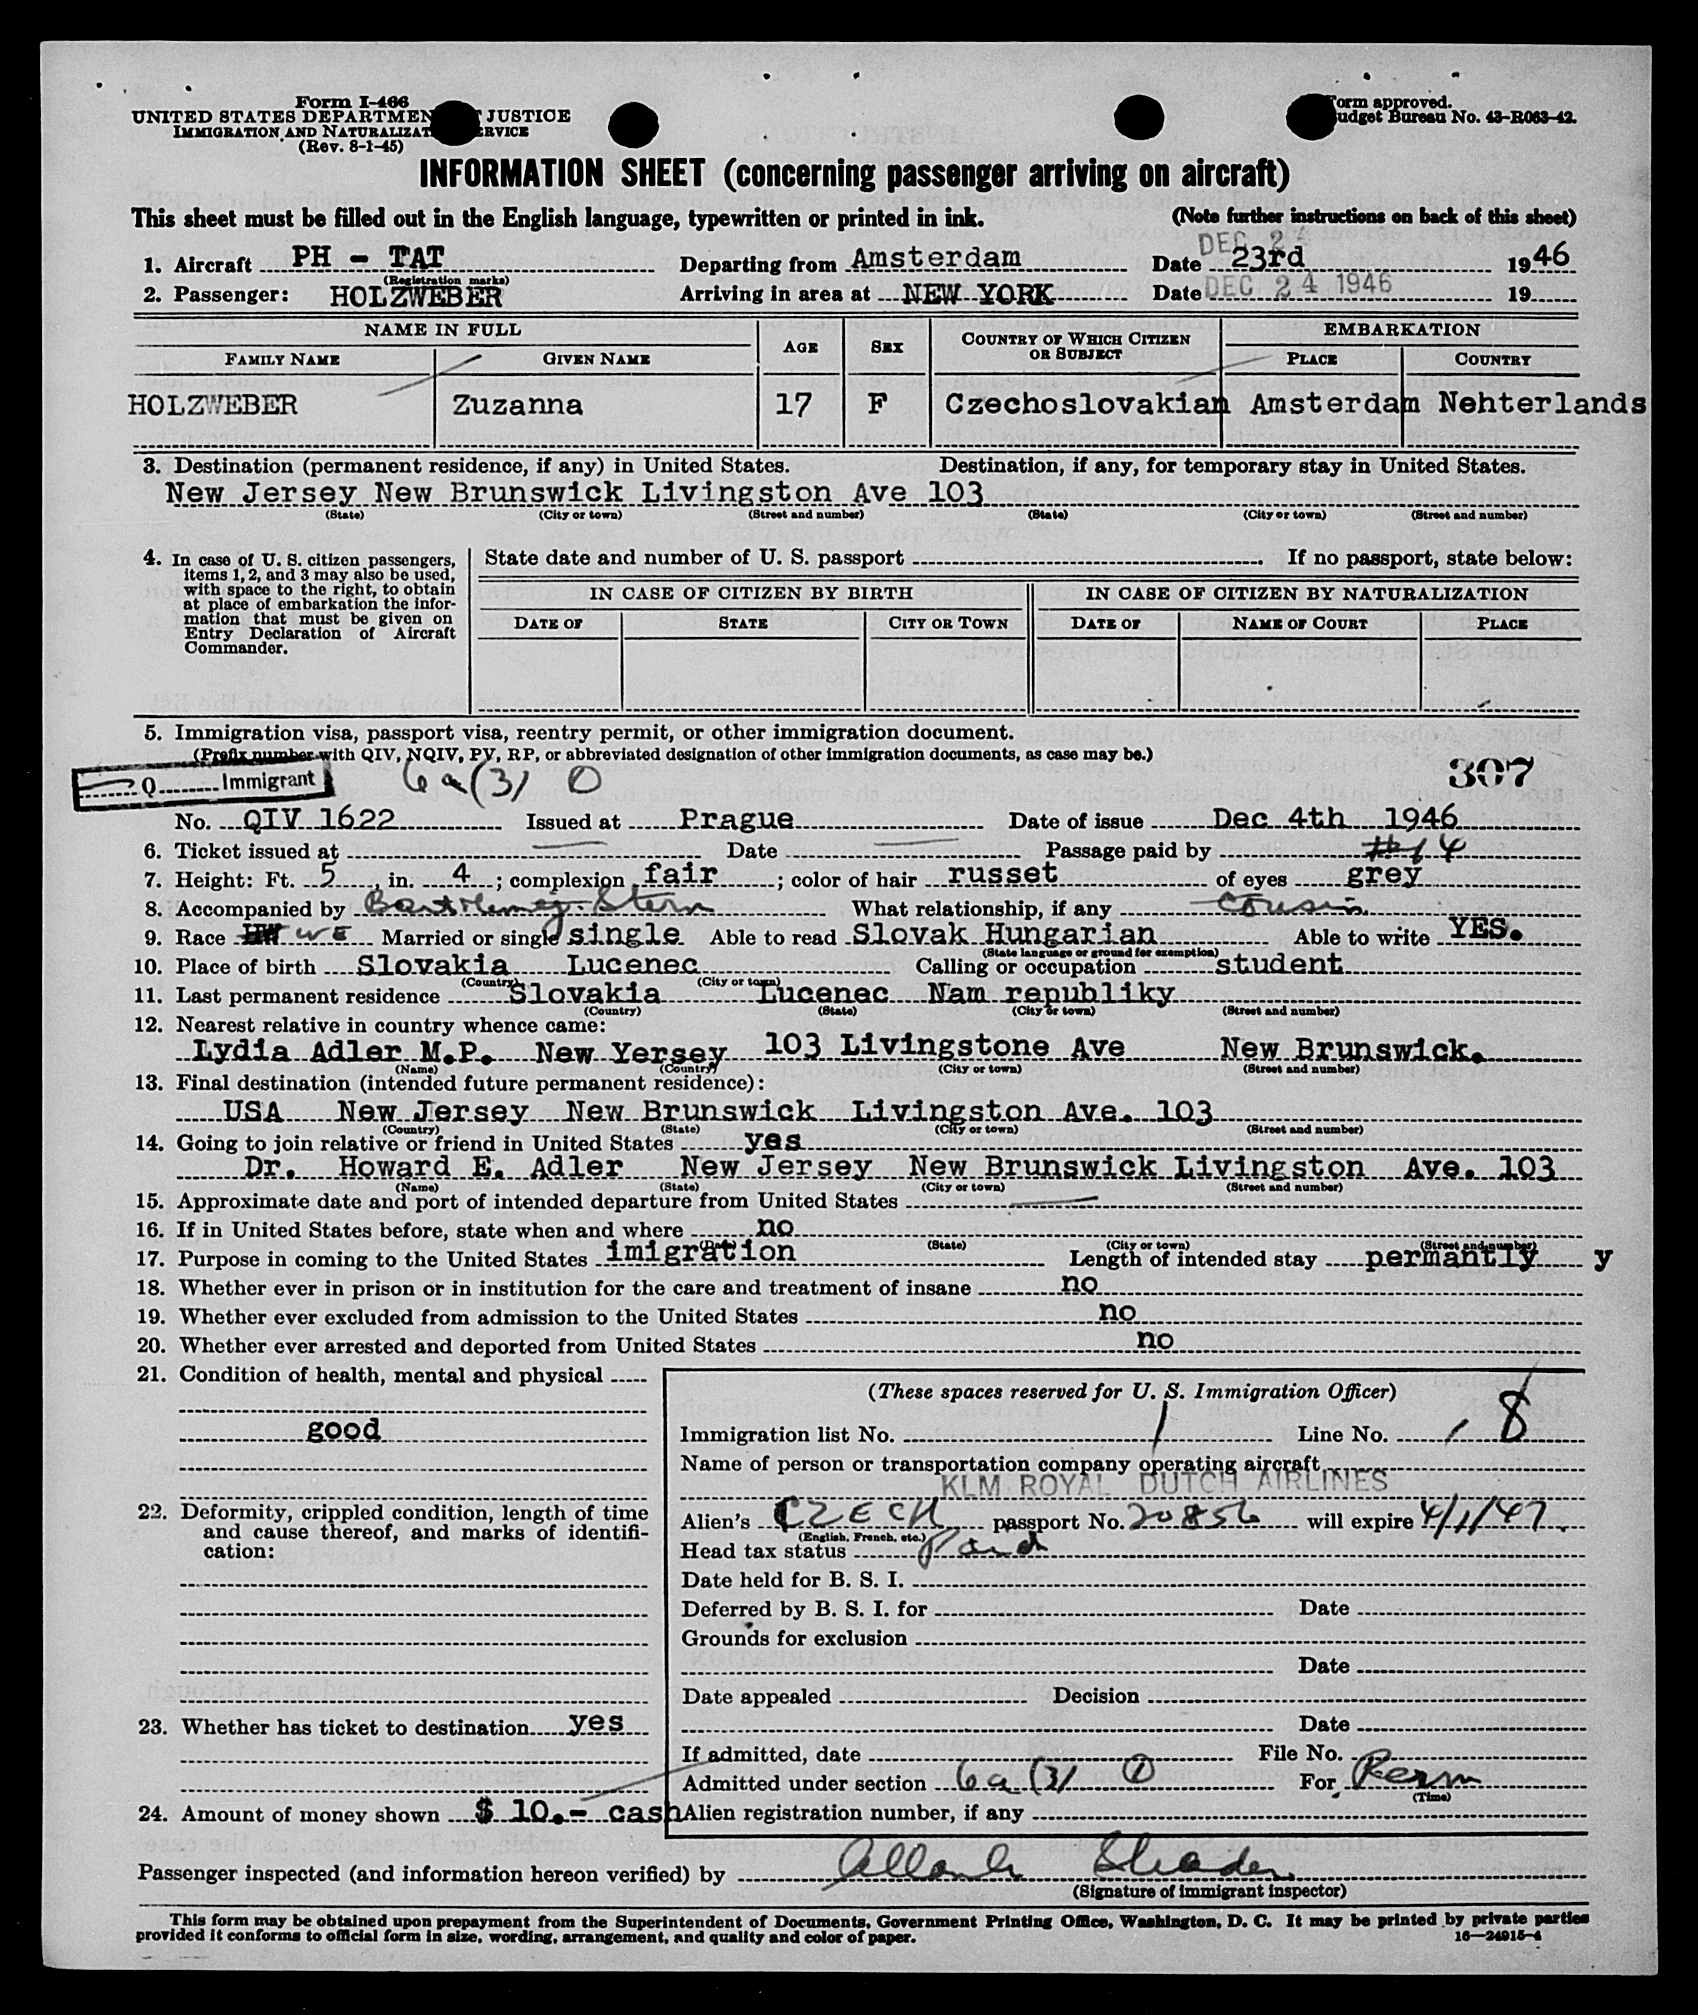 Form I-466
UNITED STATES DEPARTMEN JUSTICE
IMMIGRATION AND NATURALIZAT ERVICE
(Rev. 8-1-45)
orm approved.
udget Bureau No. 43-R063-42.
INFORMATION SHEET (concerning passenger arriving on aircraft)
This sheet must be filled out in the English language, typewritten or printed in ink. (Note further instructions on back of this sheet)
DEC 24
1. Aircraft PH - TAT Departing from Amsterdam Date 23rd 1946
(Registration marks)
2. Passenger: HOLZWEBER Arriving in area at NEW YORK Date DEC 24 1946 19
NAME IN FULL AGE SEX COUNTRY OF WHICH CITIZEN OR SUBJECT EMBARKATION
FAMILY NAME GIVEN NAME PLACE COUNTRY
HOLZWEBER Zuzanna 17 F Czechoslovakian Amsterdam Nehterlands
3. Destination (permanent residence, if any) in United States. Destination, if any, for temporary stay in United States.
New Jersey New Brunswick Livingston Ave 103
(State) (City or town) (Street and number) (State) (City or town) (Street and number)
4. In case of U. S. citizen passengers,
items 1, 2, and 3 may also be used,
with space to the right, to obtain
at place of embarkation the infor-
mation that must be given on
Entry Declaration of Aircraft
Commander.
State date and number of U. S. passport If no passport, state below:
IN CASE OF CITIZEN BY BIRTH IN CASE OF CITIZEN BY NATURALIZATION
DATE OF STATE CITY OR TOWN DATE OF NAME OF COURT PLACE
5. Immigration visa, passport visa, reentry permit, or other immigration document.
(Prefix number with QIV, NQIV, PV, RP, or abbreviated designation of other immigration documents, as case may be.)
Q Immigrant 6a(3) 0 307
No. QIV 1622 Issued at Prague Date of issue Dec 4th 1946
6. Ticket issued at Date Passage paid by #14
7. Height: Ft. 5, in. 4; complexion fair; color of hair russet of eyes grey
8. Accompanied by Stern What relationship, if any cousin
9. Race WE Married or single single Able to read Slovak Hungarian Able to write YES.
(State language or ground for exemption)
10. Place of birth Slovakia Lucenec Calling or occupation student
(Country) (City or town)
11. Last permanent residence Slovakia Lucenec Nam republiky
(Country) (State) (City or town) (Street and number)
12. Nearest relative in country whence came:
Lydia Adler M.P. New Yersey 103 Livingstone Ave New Brunswick.
(Name) (Country) (City or town) (Street and number)
13. Final destination (intended future permanent residence):
USA New Jersey New Brunswick Livingston Ave. 103
(Country) (State) (City or town) (Street and number)
14. Going to join relative or friend in United States yes
Dr. Howard E. Adler New Jersey New Brunswick Livingston Ave. 103
(Name) (State) (City or town) (Street and number)
15. Approximate date and port of intended departure from United States
16. If in United States before, state when and where no
(Date) (State) (City or town) (Street and number)
17. Purpose in coming to the United States imigration Length of intended stay permantly y
18. Whether ever in prison or in institution for the care and treatment of insane no
19. Whether ever excluded from admission to the United States no
20. Whether ever arrested and deported from United States no
21. Condition of health, mental and physical
good
22. Deformity, crippled condition, length of time
and cause thereof, and marks of identifi-
cation:
23. Whether has ticket to destination yes
24. Amount of money shown $ 10.- cash
(These spaces reserved for U. S. Immigration Officer)
Immigration list No. 1 Line No. 8
Name of person or transportation company operating aircraft
KLM ROYAL DUTCH AIRLINES
Alien's CZECH passport No. 20856 will expire 4/1/47.
(English, French, etc.)
Head tax status Paid
Date held for B. S. I.
Deferred by B. S. I. for Date
Grounds for exclusion
Date
Date appealed Decision
Date
If admitted, date File No.
Admitted under section 6a (3) 0 For Perm
(Time)
Alien registration number, if any
Passenger inspected (and information hereon verified) by
(Signature of immigrant inspector)
This form may be obtained upon prepayment from the Superintendent of Documents, Government Printing Office, Washington, D. C. It may be printed by private parties
provided it conforms to official form in size, wording, arrangement, and quality and color of paper. 16—24915-4